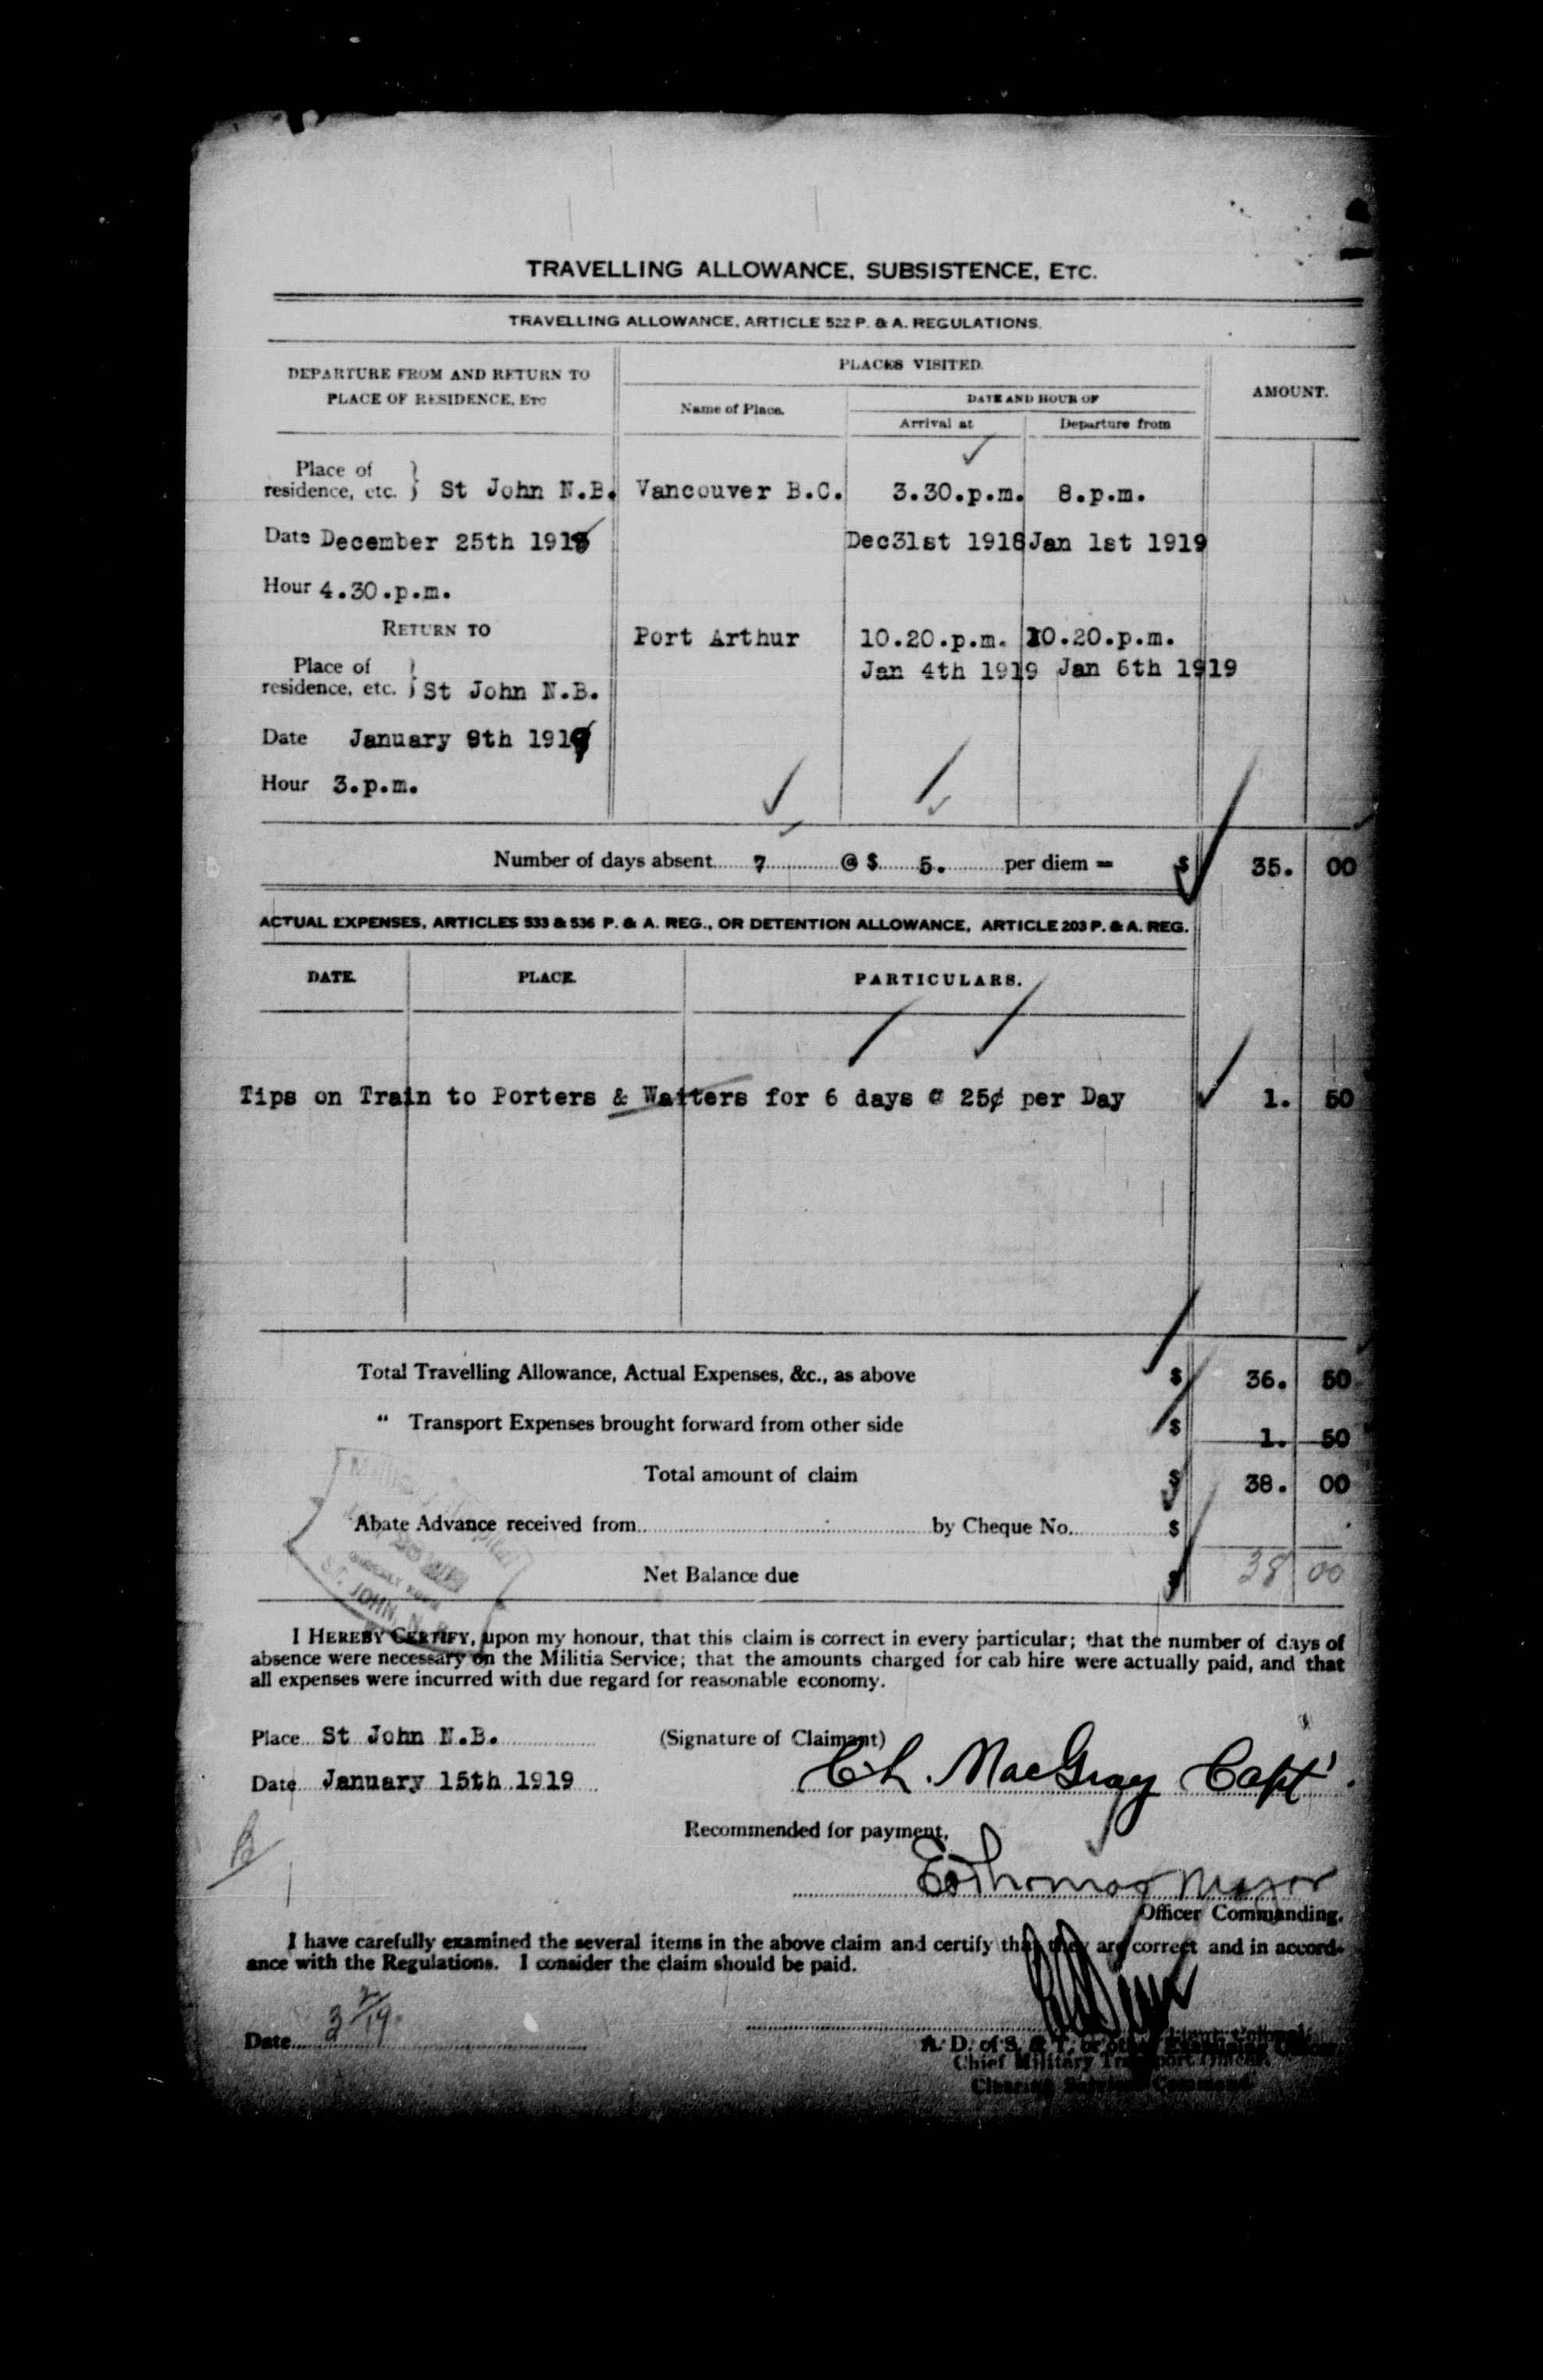 TRAVELLING ALLOWANCE, SUBSISTENCE, ETC.
TRAVELLING ALLOWANCE, ARTICLE 522 P. & A. REGULATIONS.
DEPARTURE FROM AND RETURN TO
PLACE OF RESIDENCE, ETC
PLACES VISITED.
AMOUNT.
Name of Place.
DATE AND HOUR OF
Arrival at
Departure from
Place of
residence, etc. } St John N.B. Vancouver B.C. 3.30.p.m. 8.p.m.
Date December 25th 1918 Dec31st 1918 Jan 1st 1919
Hour 4.30.p.m.
RETURN TO
Port Arthur 10.20.p.m. 10.20.p.m.
Place of
Jan 4th 1919 Jan 6th 1919
residence, etc. } St John N.B.
Date January 9th 1919
Hour 3.p.m.
Number of days absent 7 @ $ 5. per diem = $ 35. 00
ACTUAL EXPENSES, ARTICLES 533 & 536 P. & A. REG., OR DETENTION ALLOWANCE, ARTICLE 203 P. & A. REG.
DATE. PLACE. PARTICULARS.
Tips on Train to Porters & Waiters for 6 days @ 25¢ per Day 1. 50
Total Travelling Allowance, Actual Expenses, &c., as above $ 36. 50
" Transport Expenses brought forward from other side $ 1. 50
Total amount of claim $ 38. 00
Abate Advance received from by Cheque No. $
Net Balance due $ 38 00
ST. JOHN, N.
I HEREBY CERTIFY, upon my honour, that this claim is correct in every particular; that the number of days of
absence were necessary on the Militia Service; that the amounts charged for cab hire were actually paid, and that
all expenses were incurred with due regard for reasonable economy.
Place St John N.B. (Signature of Claimant)
C.L. MacGray Capt.
Date January 15th 1919
Recommended for payment,
Thomas Major
Officer Commanding.
I have carefully examined the several items in the above claim and certify that they are correct and in accord-
ance with the Regulations. I consider the claim should be paid.
Date 3/2/19
Lieut. Colonel
A. D. of S. & T. or other Examining Officer
Chief Military Transport Officer
Clearing Services Command